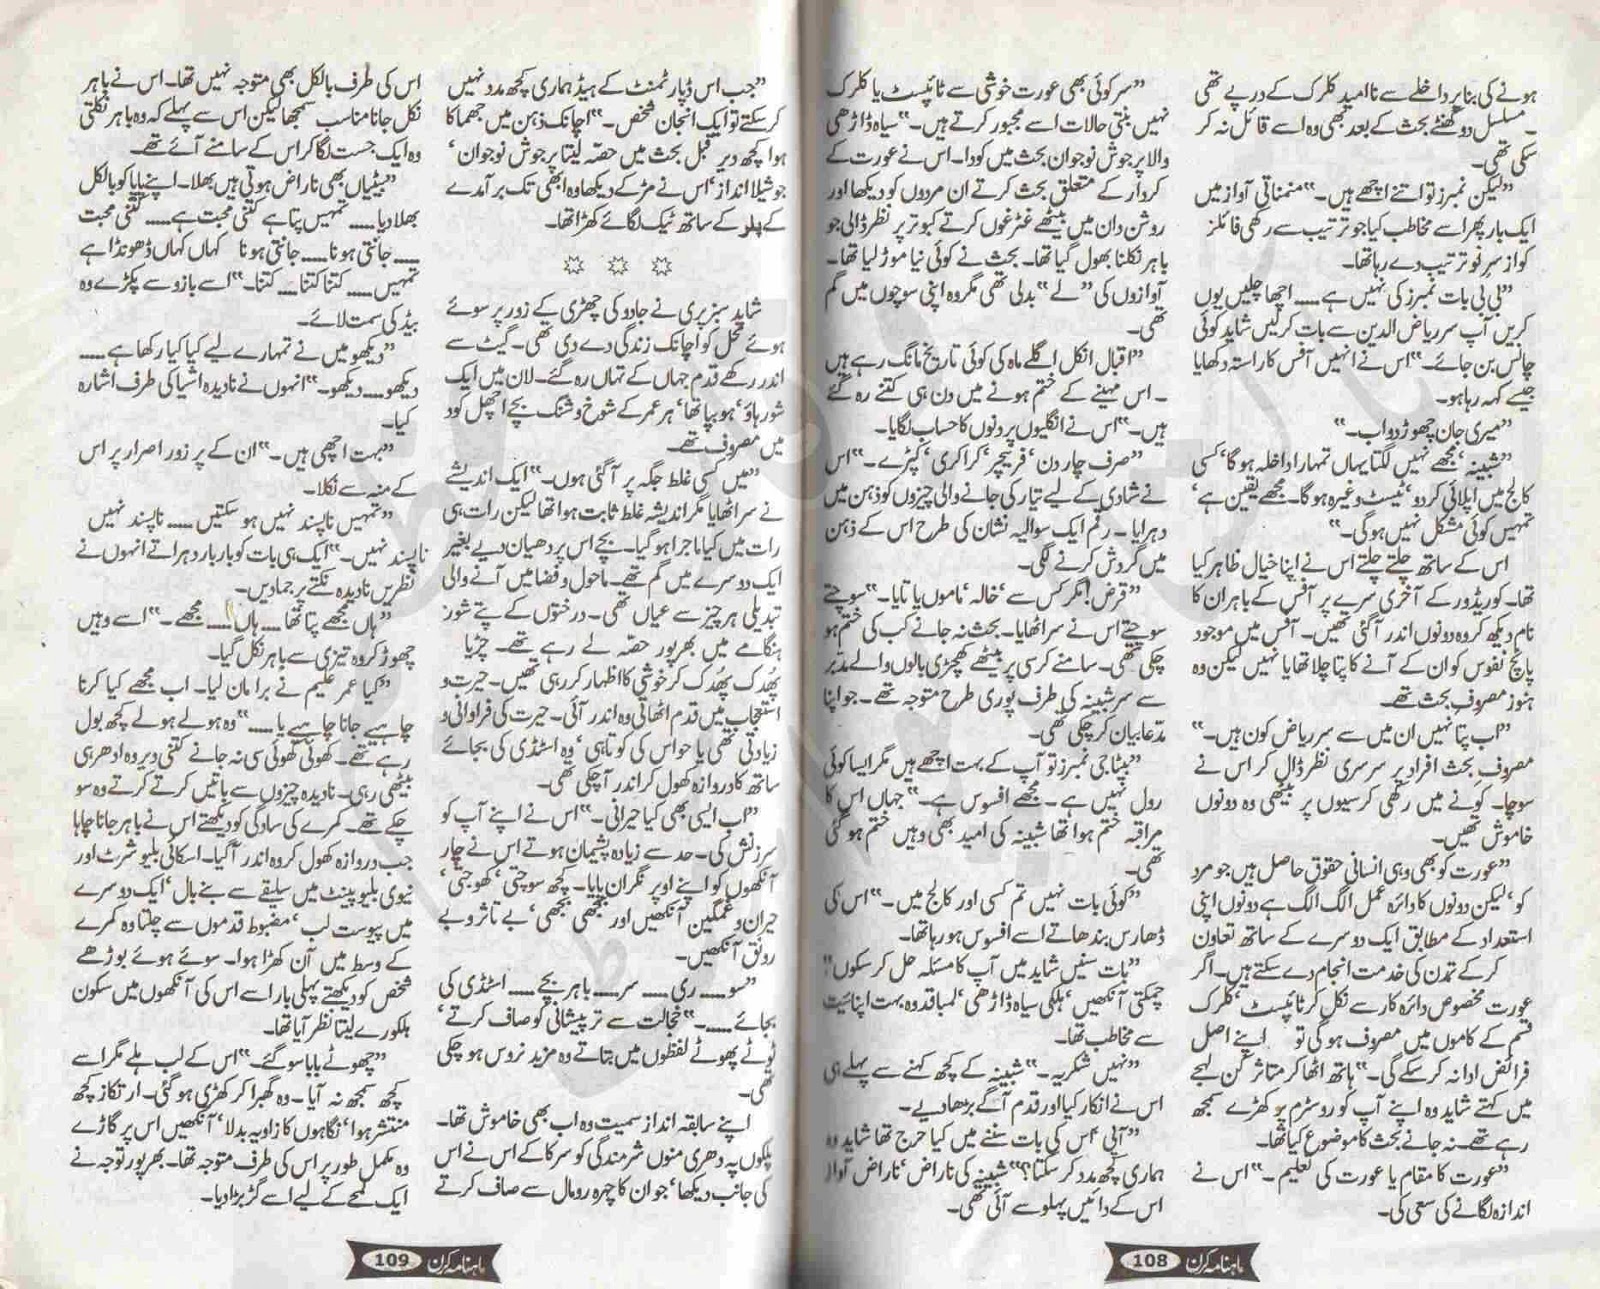 ہونے کی بنا پر داخلے سے ناامید کلرک کے درپے تھی
۔ مسلسل دو گھنٹے بحث کے بعد بھی وہ اسے قائل نہ کر
سکی تھی۔
”لیکن نمبرز تو اتنے اچھے ہیں۔“ منمناتی آواز میں
ایک بار پھر اسے مخاطب کیا جو ترتیب سے رکھی فائلز
کو از سر نو ترتیب دے رہا تھا۔
”بی بی بات نمبرز کی نہیں ہے ..... اچھا چلیں یوں
کریں آپ سر ریاض الدین سے بات کرلیں شاید کوئی
چانس بن جائے۔“ اس نے انہیں آفس کا راستہ دکھایا
جیسے کہہ رہا ہو۔
”میری جان چھوڑ دو اب۔“
”شبینہ‘ مجھے نہیں لگتا یہاں تمہارا داخلہ ہوگا‘ کسی
کالج میں اپلائی کردو‘ ٹیسٹ وغیرہ ہوگا۔ مجھے یقین ہے‘
تمہیں کوئی مشکل نہیں ہوگی۔“
اس کے ساتھ چلتے چلتے اس نے اپنا خیال ظاہر کیا
تھا۔ کوریڈور کے آخری سرے پر آفس کے باہر ان کا
نام دیکھ کر وہ دونوں اندر آگئی تھیں۔ آفس میں موجود
پانچ نفوس کو ان کے آنے کا پتا چلا تھا یا نہیں لیکن وہ
ہنوز مصروف بحث تھے۔
”اب پتا نہیں ان میں سے سر ریاض کون ہیں۔“
مصروف بحث افراد پر سرسری نظر ڈال کر اس نے
سوچا۔ کونے میں رکھی کرسیوں پر بیٹھی وہ دونوں
خاموش تھیں۔
”عورت کو بھی وہی انسانی حقوق حاصل ہیں جو مرد
کو‘ لیکن دونوں کا دائرہ عمل الگ الگ ہے دونوں اپنی
استعداد کے مطابق ایک دوسرے کے ساتھ تعاون
کرکے تمدن کی خدمت انجام دے سکتے ہیں۔ اگر
عورت مخصوص دائرہ کار سے نکل کر ٹائپسٹ‘ کلرک
قسم کے کاموں میں مصروف ہوگی تو اپنے اصل
فرائض ادا نہ کرسکے گی۔“ ہاتھ اٹھا کر متاثر کن لہجے
میں کہتے شاید وہ اپنے آپ کو روسٹرم پر کھڑے سمجھ
رہے تھے۔ نہ جانے بحث کا موضوع کیا تھا۔
”عورت کا مقام یا عورت کی تعلیم۔“ اس نے
اندازہ لگانے کی سعی کی۔
”سر کوئی بھی عورت خوشی سے ٹائپسٹ یا کلرک
نہیں بنتی حالات اسے مجبور کرتے ہیں۔“ سیاہ داڑھی
والا پرجوش نوجوان بحث میں کودا۔ اس نے عورت کے
کردار کے متعلق بحث کرتے ان مردوں کو دیکھا اور
روشن دان میں بیٹھے غٹرغوں کرتے کبوتر پر نظر ڈالی جو
باہر نکلنا بھول گیا تھا۔ بحث نے کوئی نیا موڑ لیا تھا۔
آوازوں کی ”لے“ بدلی تھی مگر وہ اپنی سوچوں میں گم
تھی۔
”اقبال انکل اگلے ماہ کی کوئی تاریخ مانگ رہے ہیں
۔ اس مہینے کے ختم ہونے میں دن ہی کتنے رہ گئے
ہیں۔“ اس نے انگلیوں پر دنوں کا حساب لگایا۔
”صرف چار دن‘ فرنیچر‘ کراکری‘ کپڑے۔“ اس
نے شادی کے لیے تیار کی جانے والی چیزوں کو ذہن میں
دہرایا۔ رقم ایک سوالیہ نشان کی طرح اس کے ذہن
میں گردش کرنے لگی۔
”قرض! مگر کس سے‘ خالہ‘ ماموں یا تایا۔“ سوچتے
سوچتے اس نے سر اٹھایا۔ بحث نہ جانے کب کی ختم ہو
چکی تھی۔ سامنے کرسی پر بیٹھے کھچڑی بالوں والے مدبر
سے سر شبینہ کی طرف پوری طرح متوجہ تھے۔ جو اپنا
مدعا بیان کرچکی تھی۔
”بیٹا جی نمبرز تو آپ کے بہت اچھے ہیں مگر ایسا کوئی
رول نہیں ہے۔ مجھے افسوس ہے۔“ جہاں اس کا
مراقبہ ختم ہوا تھا شبینہ کی امید بھی وہیں ختم ہوگئی
تھی۔
”کوئی بات نہیں تم کسی اور کالج میں۔“ اس کی
ڈھارس بندھاتے اسے افسوس ہو رہا تھا۔
”بات سنیں شاید میں آپ کا مسئلہ حل کرسکوں“
چمکتی آنکھیں‘ ہلکی سیاہ داڑھی‘ لمبا قد وہ بہت اپنائیت
سے مخاطب تھا۔
”نہیں شکریہ۔“ شبینہ کے کچھ کہنے سے پہلے ہی
اس نے انکار کیا اور قدم آگے بڑھا دیے۔
”آپی‘ اس کی بات سننے میں کیا حرج تھا شاید وہ
ہماری کچھ مدد کرسکتا؟“ شبینہ کی ناراض‘ ناراض آواز
اس کے دائیں پہلو سے آئی تھی۔
ماہنامہ کرن 108
”جب اس ڈپارٹمنٹ کے ہیڈ ہماری کچھ مدد نہیں
کرسکتے تو ایک انجان شخص۔“ اچانک ذہن میں جھماکا
ہوا کچھ دیر قبل بحث میں حصہ لیتا پرجوش نوجوان‘
جوشیلا انداز‘ اس نے مڑ کے دیکھا وہ ابھی تک برآمدے
کے پلر کے ساتھ ٹیک لگائے کھڑا تھا۔
☼ ☼ ☼
شاید سبز پری نے جادو کی چھڑی کے زور پر سوئے
ہوئے محل کو اچانک زندگی دے دی تھی۔ گیٹ سے
اندر رکھے قدم جہاں کے تہاں رہ گئے۔ لان میں ایک
شور ہاؤ‘ ہو بپا تھا‘ ہر عمر کے شوخ و شنگ بچے اچھل کود
میں مصروف تھے۔
”میں کسی غلط جگہ پر آگئی ہوں۔“ ایک اندیشے
نے سر اٹھایا مگر اندیشہ غلط ثابت ہوا تھا لیکن رات ہی
رات میں کیا ماجرا ہوگیا۔ بچے اس پر دھیان دیے بغیر
ایک دوسرے میں گم تھے۔ ماحول و فضا میں آنے والی
تبدیلی ہر چیز سے عیاں تھی۔ درختوں کے پتے شور
ہنگامے میں بھرپور حصہ لے رہے تھے۔ چڑیا
پُھدک پُھدک کر خوشی کا اظہار کررہی تھیں۔ حیرت و
استعجاب میں قدم اٹھاتی وہ اندر آئی۔ حیرت کی فراوانی و
زیادتی تھی یا حواس کی کوتاہی‘ وہ اسٹڈی کی بجائے
ساتھ کا دروازہ کھول کر اندر آچکی تھی۔
”اب ایسی بھی کیا حیرانی۔“ اس نے اپنے آپ کو
سرزنش کی۔ حد سے زیادہ پشیمان ہوتے اس نے چار
آنکھوں کو اپنے اوپر نگران پایا۔ کچھ سوچتی‘ کھوجتی‘
حیران و غمگین آنکھیں اور بجھی بجھی‘ بے تاثر و بے
رونق آنکھیں۔
”سو..... ری ..... سر..... باہر بچے ..... اسٹڈی کی
بجائے .....۔“ خجالت سے تر پیشانی کو صاف کرتے‘
ٹوٹے پھوٹے لفظوں میں بتاتے وہ مزید نروس ہو چکی
تھی۔
اپنے سابقہ انداز سمیت وہ اب بھی خاموش تھا۔
پلکوں پہ دھری منوں شرمندگی کو سرکا کے اس نے اس
کی جانب دیکھا‘ جو ان کا چہرہ رومال سے صاف کرتے
اس کی طرف بالکل بھی متوجہ نہیں تھا۔ اس نے باہر
نکل جانا مناسب سمجھا لیکن اس سے پہلے کہ وہ باہر نکلتی
وہ ایک جست لگا کر اس کے سامنے آئے تھے۔
”بیٹیاں بھی ناراض ہوتی ہیں بھلا۔ اپنے پاپا کو بالکل
بھلا دیا..... تمہیں پتا ہے کتنی محبت ہے..... کتنی محبت
..... جانتی ہونا..... جانتی ہونا کہاں کہاں ڈھونڈا ہے
تمہیں..... کتنا کتنا.... کتنا۔“ اسے بازو سے پکڑے وہ
بیڈ کی سمت لائے۔
”دیکھو میں نے تمہارے لیے کیا کیا رکھا ہے.....
دیکھو..... دیکھو۔“ انہوں نے نادیدہ اشیا کی طرف اشارہ
کیا۔
”بہت اچھی ہیں۔“ ان کے پرزور اصرار پر اس
کے منہ سے نکلا۔
”تمہیں ناپسند نہیں ہوسکتیں ..... ناپسند نہیں
ناپسند نہیں۔“ ایک ہی بات کو بار بار دہراتے انہوں نے
نظریں نادیدہ نکتے پر جمادیں۔
”ہاں مجھے پتا تھا..... ہاں..... مجھے۔“ اسے وہیں
چھوڑ کر وہ تیزی سے باہر نکل گیا۔
”کیا عمر علیم نے برا مان لیا۔ اب مجھے کیا کرنا
چاہیے جانا چاہیے یا.....“ وہ ہولے ہولے کچھ بول
رہے تھے۔ کھوئی کھوئی سی نہ جانے کتنی دیر وہ ادھر ہی
بیٹھی رہی۔ نادیدہ چیزوں سے باتیں کرتے کرتے وہ سو
چکے تھے۔ کمرے کی سادگی کو دیکھتے اس نے باہر جانا چاہا
جب دروازہ کھول کر وہ اندر آگیا۔ اسکائی بلیو شرٹ اور
نیوی بلیو پینٹ میں سلیقے سے بنے بال‘ ایک دوسرے
میں پیوست لب‘ مضبوط قدموں سے چلتا وہ کمرے
کے وسط میں آن کھڑا ہوا۔ سوئے ہوئے بوڑھے
شخص کو دیکھتے پہلی بار اسے اس کی آنکھوں میں سکون
ہلکورے لیتا نظر آیا تھا۔
”چھوٹے بابا سو گئے۔“ اس کے لب ہلے مگر اسے
کچھ سمجھ نہ آیا۔ وہ گھبرا کر کھڑی ہوگئی۔ ارتکاز کچھ
منتشر ہوا‘ نگاہوں کا زاویہ بدلا‘ آنکھیں اس پر گاڑے
وہ مکمل طور پر اس کی طرف متوجہ تھا۔ بھرپور توجہ نے
ایک لمحے کے لیے اسے گڑبڑا دیا۔
ماہنامہ کرن 109